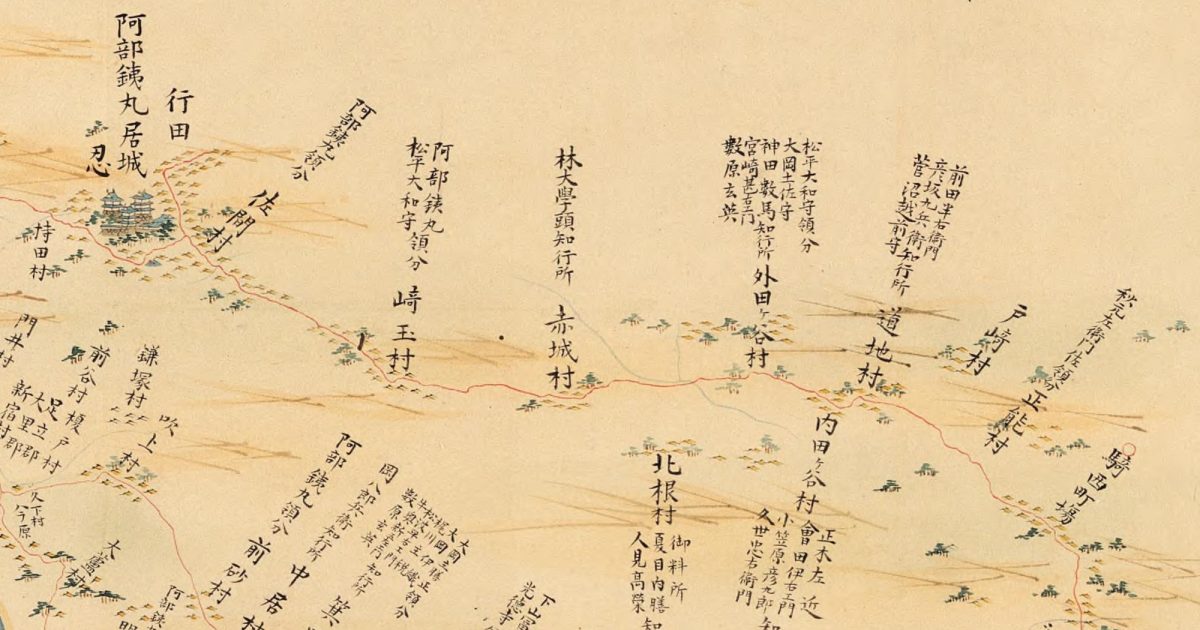 阿部銕丸居城
忍
行田
阿部銕丸領分
佐間村
持田村
阿部銕丸
松平大和守領分
崎玉村
林大學頭知行所
赤城村
松平大和守領分
大岡土佐守
神田數馬知行所
宮崎甚右衛門
數原玄英
外田ヶ谷村
前田半右衛門
彦坂九兵衛知行所
菅沼越前守
道地村
戸崎村
秋元左衛門佐領分
正能村
騎西町場
内田ヶ谷村
正木左近
會田伊右衛門
小笠原彦九郎
久世忠右衛門
知
北根村
御料所
夏目内膳
人見高榮
知
門井村
前谷村
鎌塚村
吹上村
榎戸村
足立郡
大里郡
新宿村
久下村
八丁原
大蘆村
阿部銕
阿部銕丸領分
前砂村
岡八郎兵衛知行所
中居村
箕
大岡主膳正
數原玄英
知行
下山冨
光德寺